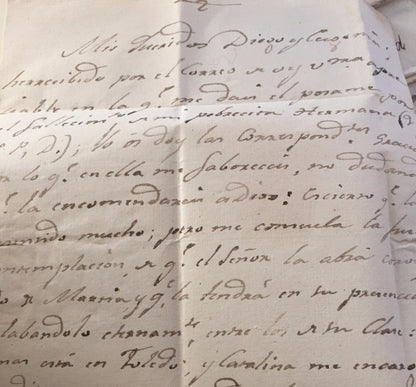 Mis queridos Diego y
he recivido por el Correo de oy vra apre
ciable en la q.e me dais el pesame por
el fallecim.to de mi pobrecica Hermana (
P, D.); Yo os doy las Correspond.tes Gracia
por lo q.e en ella me faboreceis, no dudando
q.e la encomendareis a Dios: Es cierto q.e lo
mucho; pero me consuela la
contemplacion, de q.e el Señor la abrá
de Maria, y q.e la tendrá en su presencia
alabandolo eternam.te entre los de su Clase:
está en Toledo, y Catalina me encarg